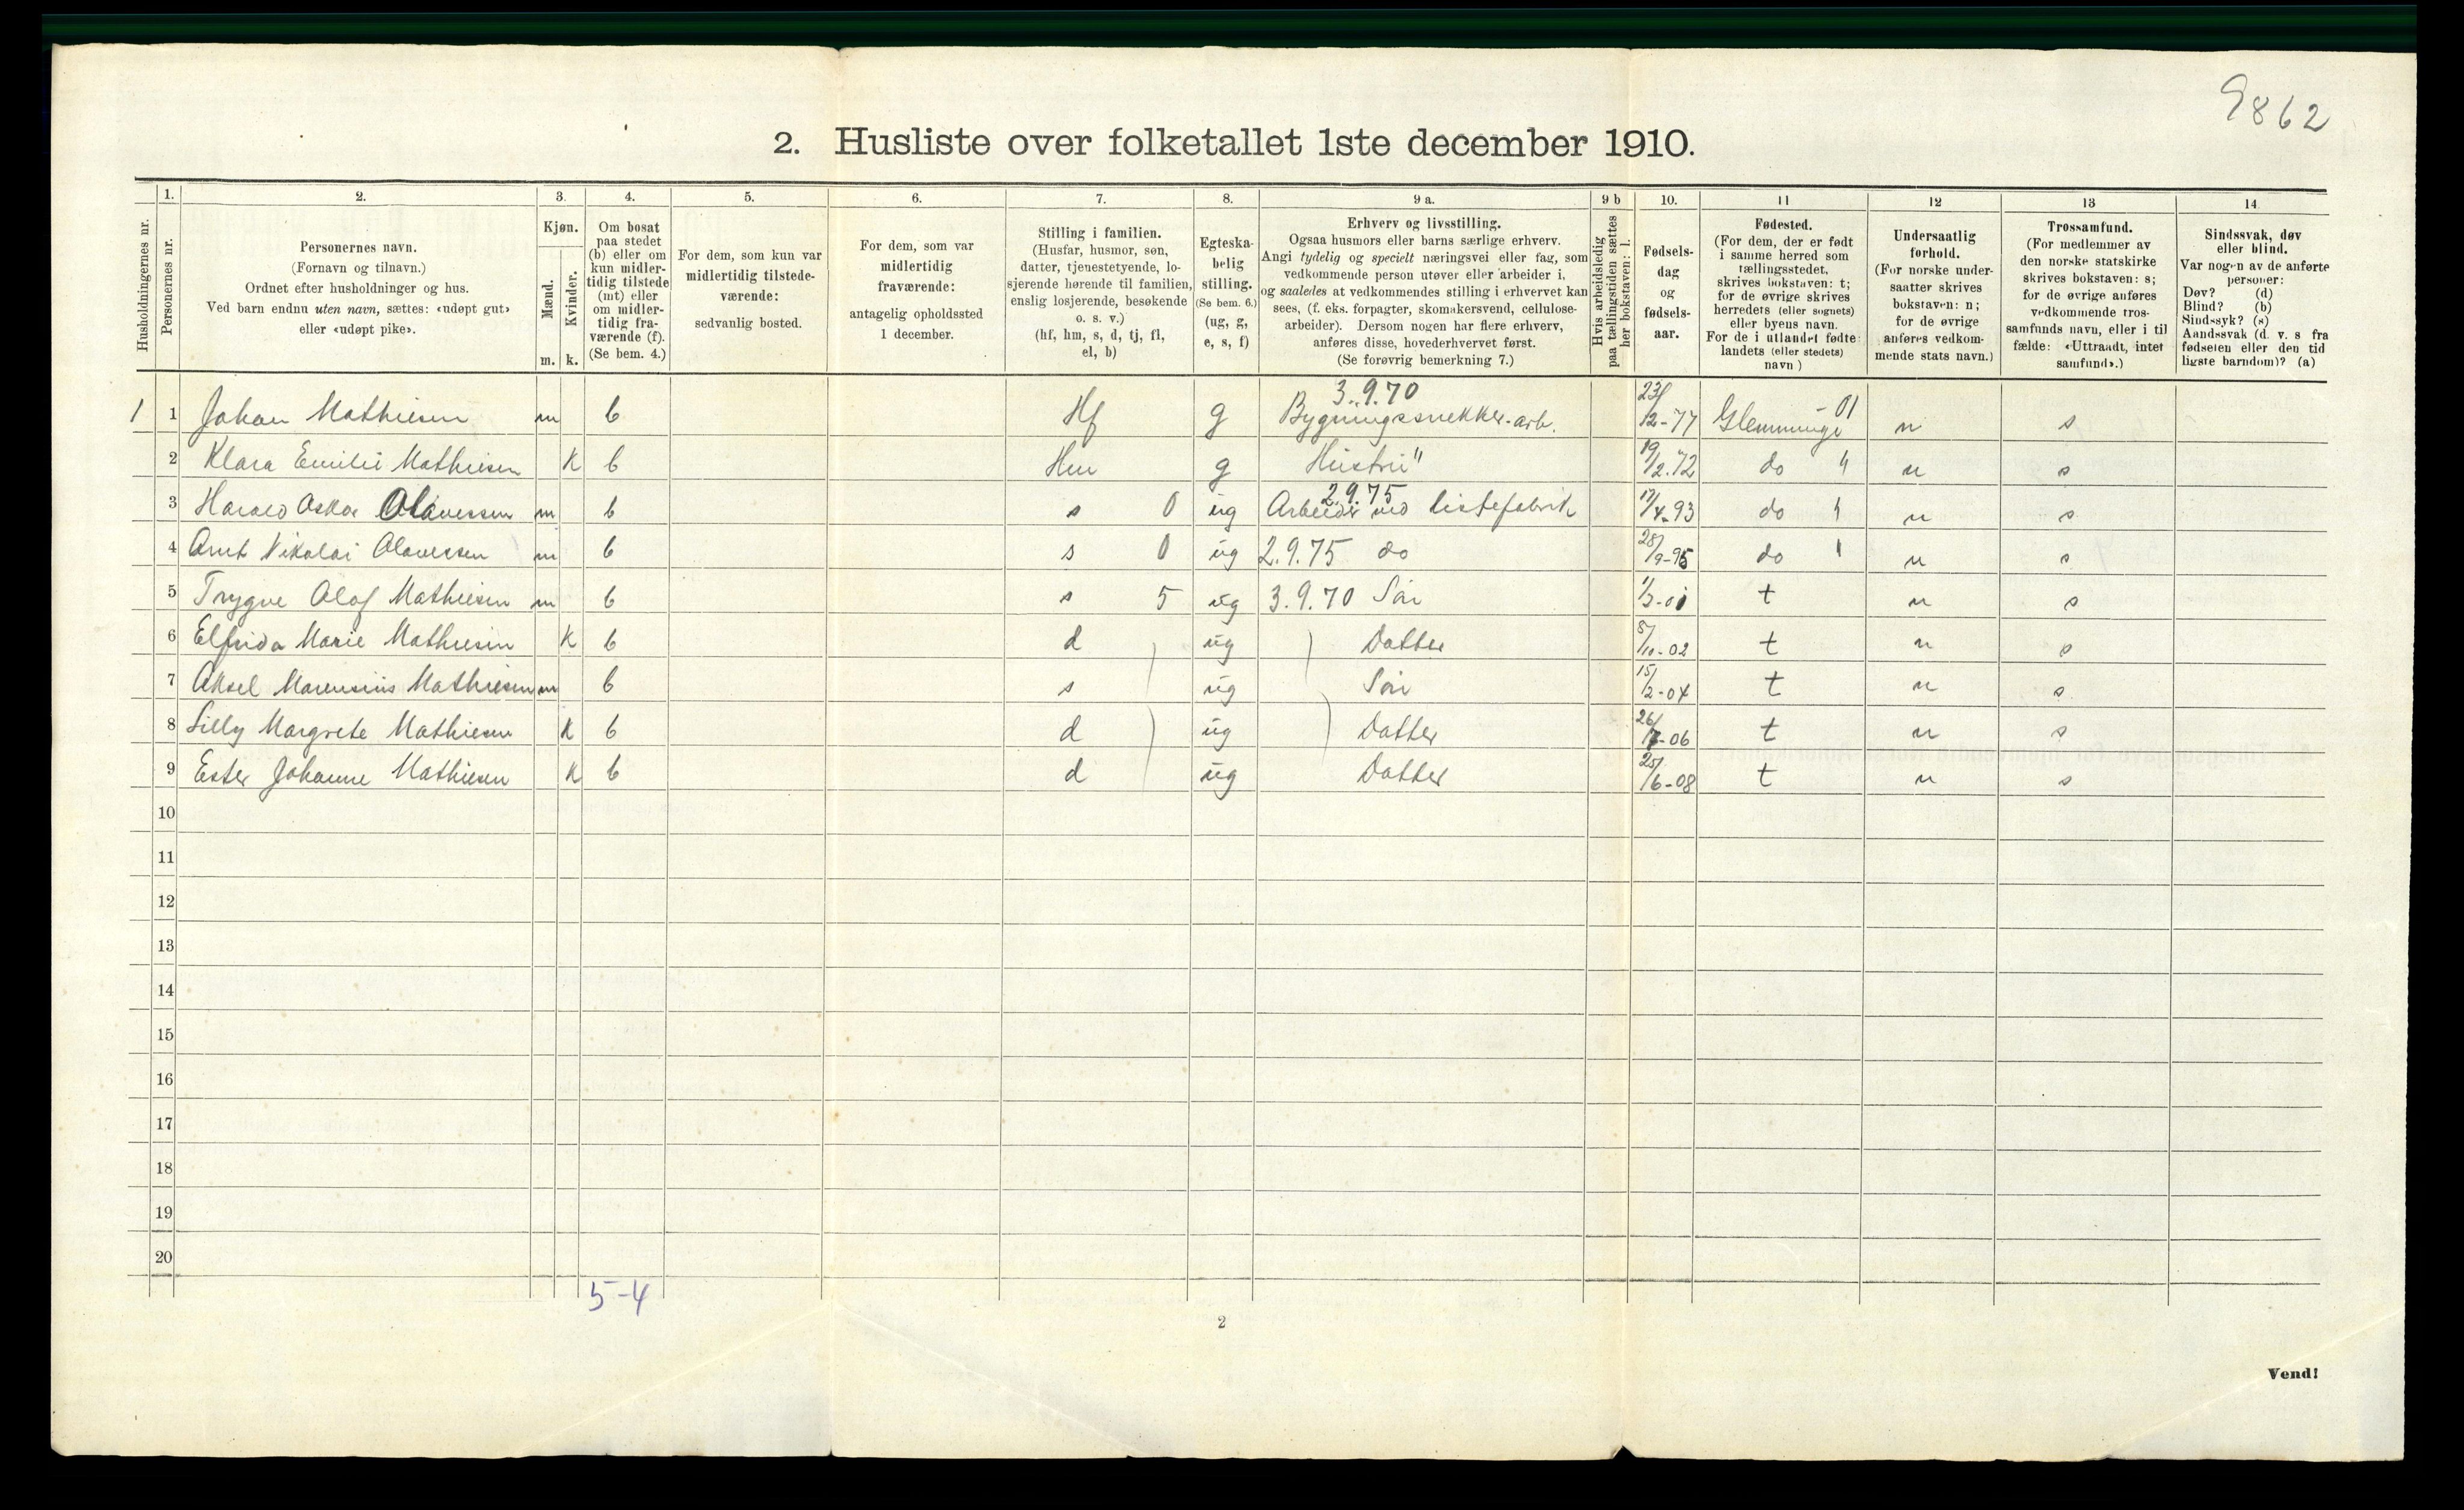 9862
2. Husliste over folketallet 1ste december 1910.
Husholdningernes nr.
1.
Personernes nr.
2.
Personernes navn.
(Fornavn og tilnavn.)
Ordnet efter husholdninger og hus.
Ved barn endnu uten navn, sættes: «udøpt gut»
eller «udøpt pike».
3.
Kjøn.
Mænd.
Kvinder.
m. k.
4.
Om bosat
paa stedet
(b) eller om
kun midler-
tidig tilstede
(mt) eller
om midler-
tidig fra-
værende (f).
(Se bem. 4.)
5.
For dem, som kun var
midlertidig tilstede-
værende:
sedvanlig bosted.
6.
For dem, som var
midlertidig
fraværende:
antagelig opholdssted
1 december.
7.
Stilling i familien.
(Husfar, husmor, søn,
datter, tjenestetyende, lo-
sjerende hørende til familien,
enslig losjerende, besøkende
o. s. v.)
(hf, hm, s, d, tj, fl,
el, b)
8.
Egteska-
belig
stilling.
(Se bem. 6.)
(ug, g,
e, s, f)
9 a.
Erhverv og livsstilling.
Ogsaa husmors eller barns særlige erhverv.
Angi tydelig og specielt næringsvei eller fag, som
vedkommende person utøver eller arbeider i,
og saaledes at vedkommendes stilling i erhvervet kan
sees, (f. eks. forpagter, skomakersvend, cellulose-
arbeider). Dersom nogen har flere erhverv,
anføres disse, hovederhvervet først.
(Se forøvrig bemerkning 7.)
9 b
Hvis arbeidsledig
paa tællingstiden sættes
her bokstaven: l.
10.
Fødsels-
dag
og
fødsels-
aar.
11
Fødested.
(For dem, der er født
i samme herred som
tællingsstedet,
skrives bokstaven: t;
for de øvrige skrives
herredets (eller sognets)
eller byens navn.
For de i utlandet fødte:
landets (eller stedets)
navn)
12
Undersaatlig
forhold.
(For norske under-
saatter skrives
bokstaven: n;
for de øvrige
anføres vedkom-
mende stats navn.)
13
Trossamfund.
(For medlemmer av
den norske statskirke
skrives bokstaven: s;
for de øvrige anføres
vedkommende tros-
samfunds navn, eller i til
fælde: «Uttraadt, intet
samfund».)
14
Sindssvak, døv
eller blind.
Var nogen av de anførte
personer:
Døv? (d)
Blind? (b)
Sindssyk? (s)
Aandssvak (d. v. s fra
fødselen eller den tid
ligste barndom)? (a)
3.9.70
1 1 Johan Mathiesen m b Hf g Bygningssnekker-arb. 23/12-77 Glemminge -01 n s
2 Klara Emilie Mathiesen k b Hm g Hustru " 19/2.72 do " n s
2.9.75
3 Harald Oskar Olavessen m b s 0 ug Arbeider ved listefabrik 17/4-93 do " n s
4 Arnt Nikolai Olavessen m b s 0 ug 2.9.75 do 28/9-95 do " n s
5 Trygve Olof Mathiesen m b s 5 ug 3.9.70 Søn 1/3-01 t n s
6 Elfrida Marie Mathiesen k b d ug Datter 5/10-02 t n s
7 Aksel Marensius Mathiesen m b s ug Søn 15/2-04 t n s
8 Lilly Margrete Mathiesen k b d ug Datter 26/7-06 t n s
9 Ester Johanne Mathiesen k b d ug Datter 25/6-08 t n s
10
11
12
13
14
15
16
17
18
19
20
5-4
2
Vend!